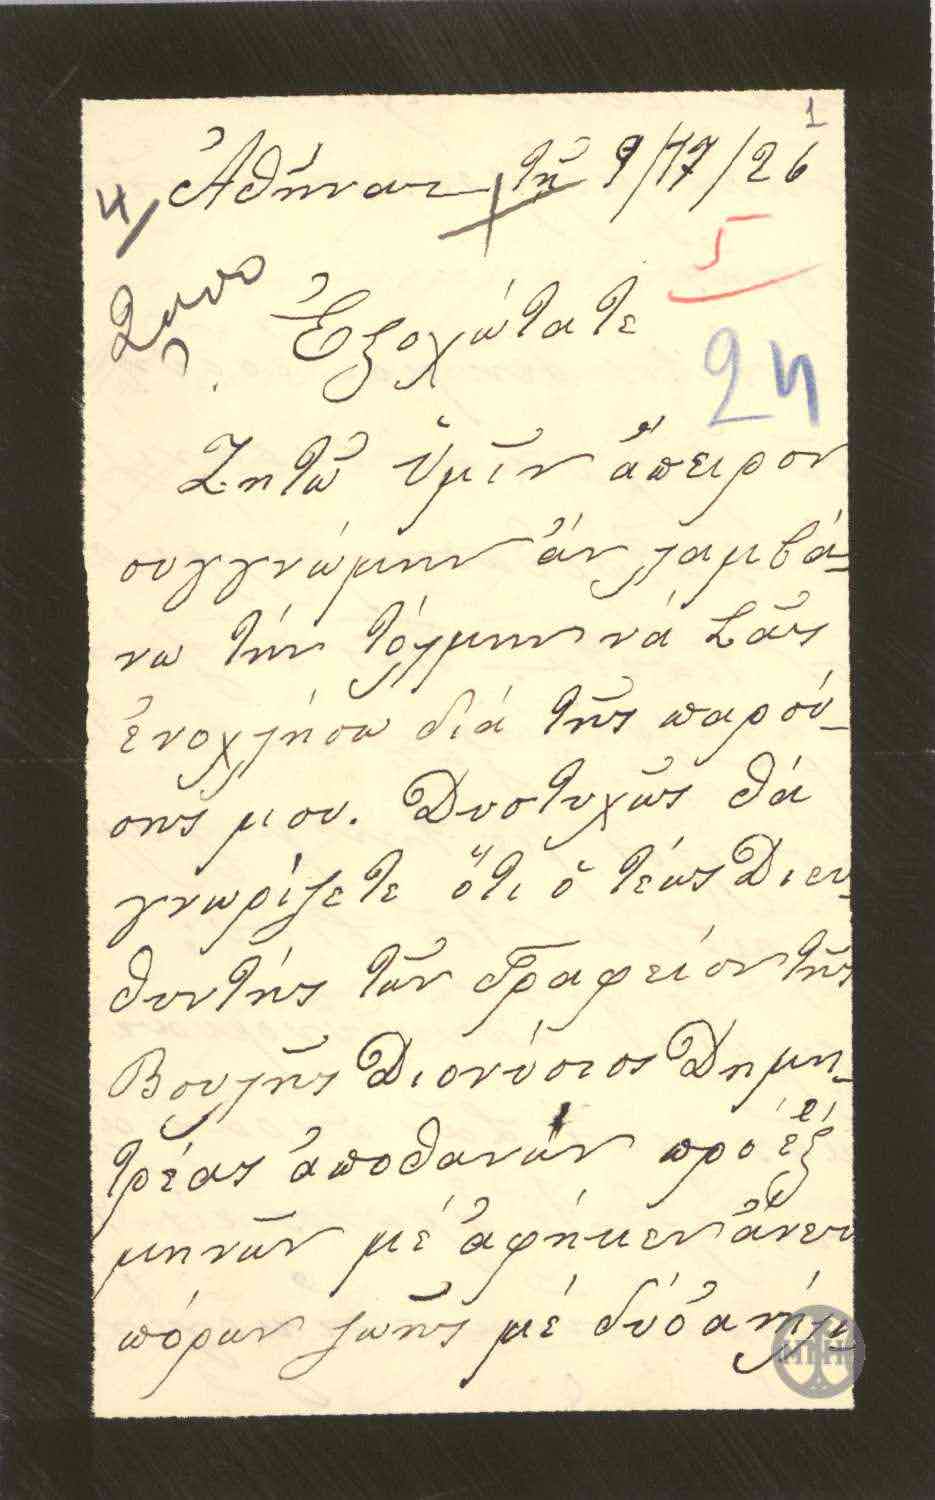 1
Ἀθῆναι τῇ 9/17/26
4/
5
Ἐξοχώτατε
24
Ζητῶ ὑμῖν ἄπειρον
συγγνώμην ἄν λαμβά-
νω τήν τόλμην νά Σᾶς
ἐνοχλήσω διά τῆς παρού-
σης μου. Δυστυχῶς θά
γνωρίζετε ὅτι ὁ τέως Διευ-
θυντής τῶν Γραφείον τῆς
Βουλῆς Διονύσιος Δημη-
τρέας ἀποθανών πρό ἕξ
μηνῶν μέ ἀφῆκεν ἄνευ
πόρων ζωῆς μέ δύο ἀνήλι